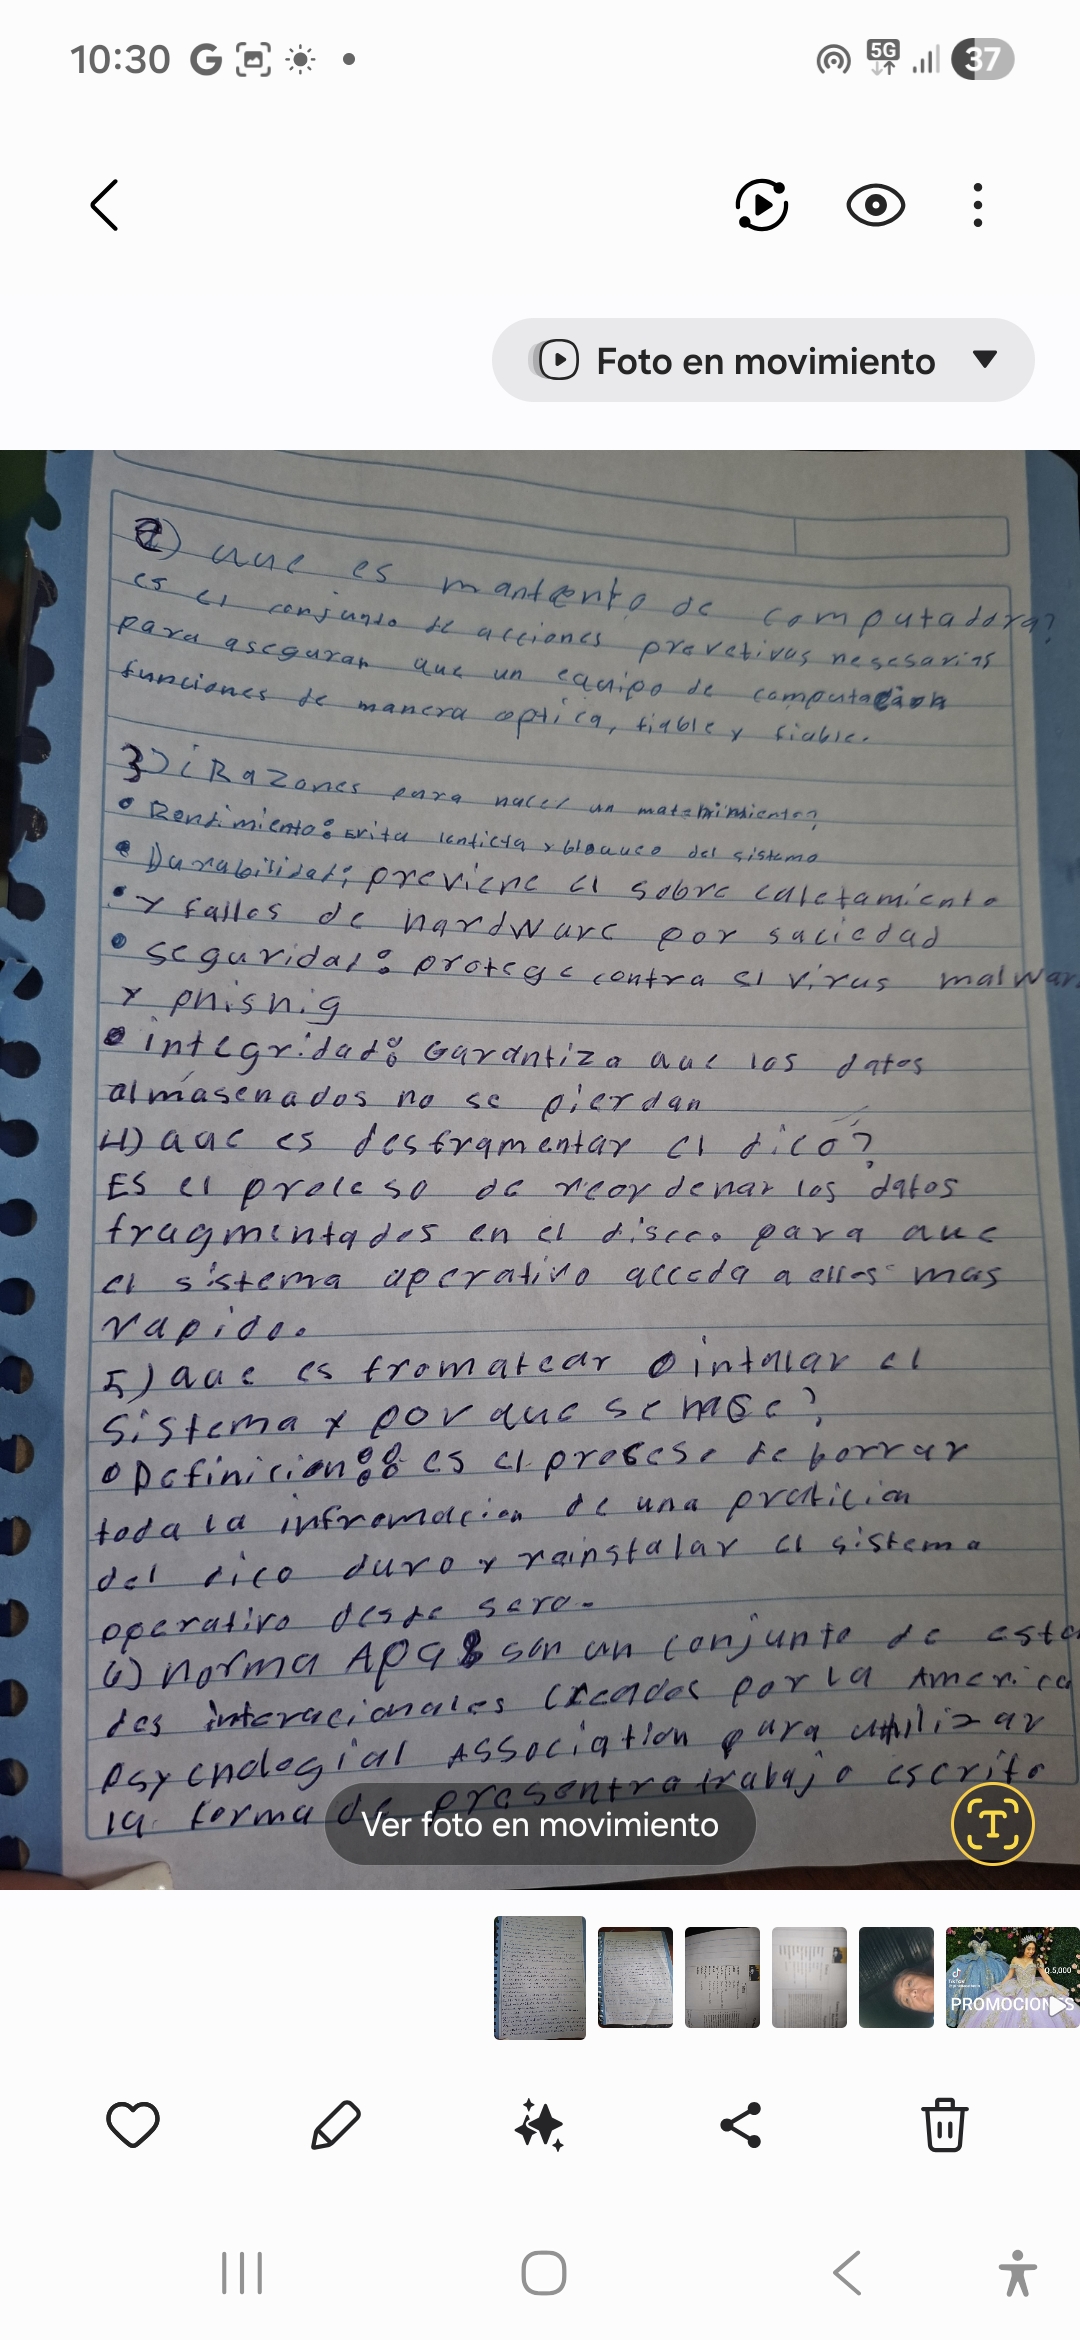 10:30
5G
37
Foto en movimiento
2) que es mantento de computadora?
es el conjunto de acciones prevetivas negesarias
para asegurar que un equipo de computación
funciones de manera optica, fiable y fiable.
3) ¿Razones para hacer un matenimiento?
• Rendimiento: Evita lenticta y bloqueo del sistema
• Durabilidad: previene el sobre caletamiento
• y fallos de hardware por suciedad
• seguridad: protege contra el virus malwar
y phisnig
• integridad: Garantiza que los datos
almasenados no se pierdan
4) que es desframentar el dico?
Es el proleso de reordenar los datos
fragmentados en el disco para que
el sistema operativo acceda a ellos mas
rapido.
5) que es fromatear o intalar el
sistema y por que se hace?
• Definicion: es el proceso de borrar
toda la infromacion de una praticion
del dico duro y reinstalar el sistema
operativo desde sero.
6) norma APA son un conjunto de esta
des interacionales creados por la America
Psychologial Association para utilizar
la forma de presentra trabajo escrito
Ver foto en movimiento
T
TikTok
Q.5,000
PROMOCIONES